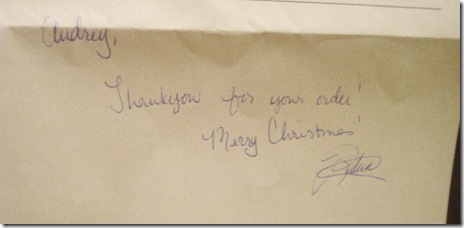 Audrey,
Thankyou for your order!
Merry Christmas!